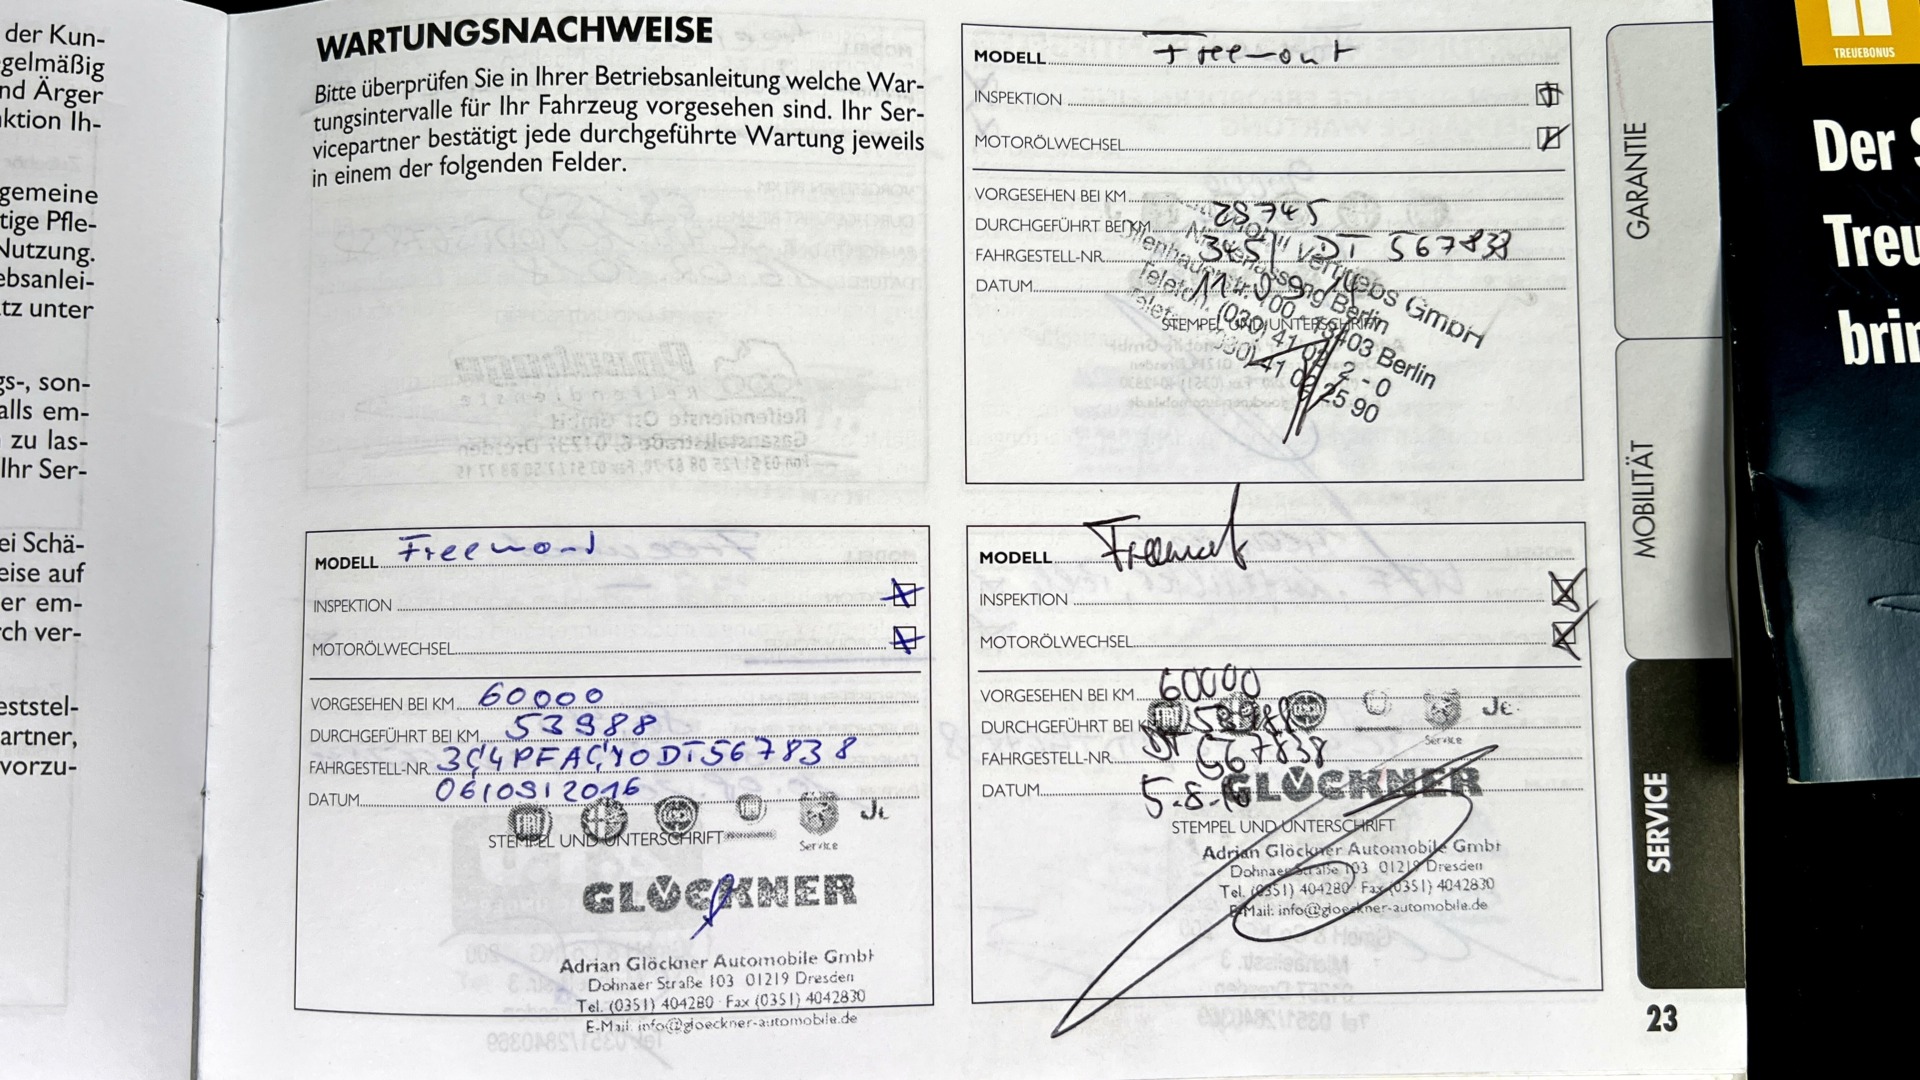 der Kun-
gelmäßig
nd Ärger
ktion Ih-
gemeine
tige Pfle-
Nutzung.
ebsanlei-
tz unter
gs-, son-
alls em-
zu las-
Ihr Ser-
ei Schä-
eise auf
er em-
rch ver-
eststel-
artner,
vorzu-
WARTUNGSNACHWEISE
Bitte überprüfen Sie in Ihrer Betriebsanleitung welche War-
tungsintervalle für Ihr Fahrzeug vorgesehen sind. Ihr Ser-
vicepartner bestätigt jede durchgeführte Wartung jeweils
in einem der folgenden Felder.
MODELL Freemont
INSPEKTION
MOTORÖLWECHSEL
VORGESEHEN BEI KM
DURCHGEFÜHRT BEI KM 28745
FAHRGESTELL-NR. DT 567838
DATUM
STEMPEL UND UNTERSCHRIFT
Vertriebs GmbH
Niederlassung Berlin
13403 Berlin
Telefon (030) 41 02 2 - 0
(030) 41 02 25 90
MODELL Freemond
INSPEKTION
MOTORÖLWECHSEL
VORGESEHEN BEI KM 60000
DURCHGEFÜHRT BEI KM 53988
FAHRGESTELL-NR. 3C4PFACY0DT567838
DATUM 06/09/2016
STEMPEL UND UNTERSCHRIFT
Service
GLÖCKNER
Adrian Glöckner Automobile GmbH
Dohnaer Straße 103 01219 Dresden
Tel. (0351) 404280 · Fax (0351) 4042830
E-Mail: info@gloeckner-automobile.de
MODELL Freemont
INSPEKTION
MOTORÖLWECHSEL
VORGESEHEN BEI KM 60000
DURCHGEFÜHRT BEI KM
FAHRGESTELL-NR. DT 567838
DATUM 5.8.16
Service
GLÖCKNER
STEMPEL UND UNTERSCHRIFT
Adrian Glöckner Automobile GmbH
Dohnaer Straße 103 01219 Dresden
Tel. (0351) 404280 · Fax (0351) 4042830
E-Mail: info@gloeckner-automobile.de
GARANTIE
MOBILITÄT
SERVICE
23
TREUEBONUS
Der S
Treu
brin